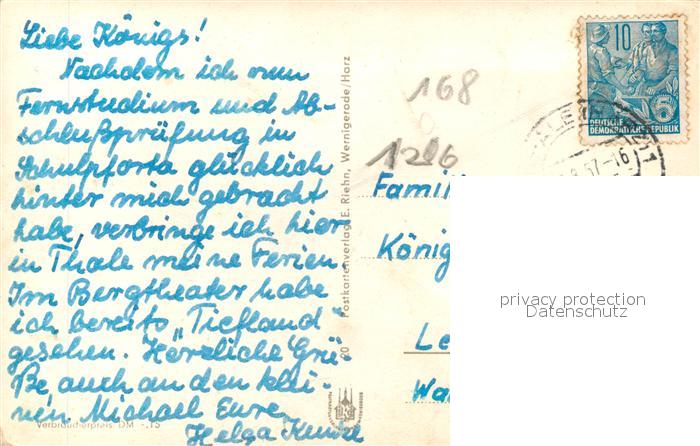 Liebe Königs!
Nachdem ich nun
Fernstudium und Ab-
schlußprüfung in
Schulpforta glücklich
hinter mich gebracht
habe, verbringe ich hier
in Thale meine Ferien.
Im Bergtheater habe
ich bereits „Tiefland"
gesehen. Herzliche Grü-
ße auch an den klei-
nen Michael Eure
Helga
Verbraucherpreis DM -,15
Postkartenverlag E. Riehn, Wernigerode/Harz
168
1286
10
DEUTSCHE
DEMOKRATISCHE REPUBLIK
57-16
Famili
König
Le
Wa
privacy protection
Datenschutz